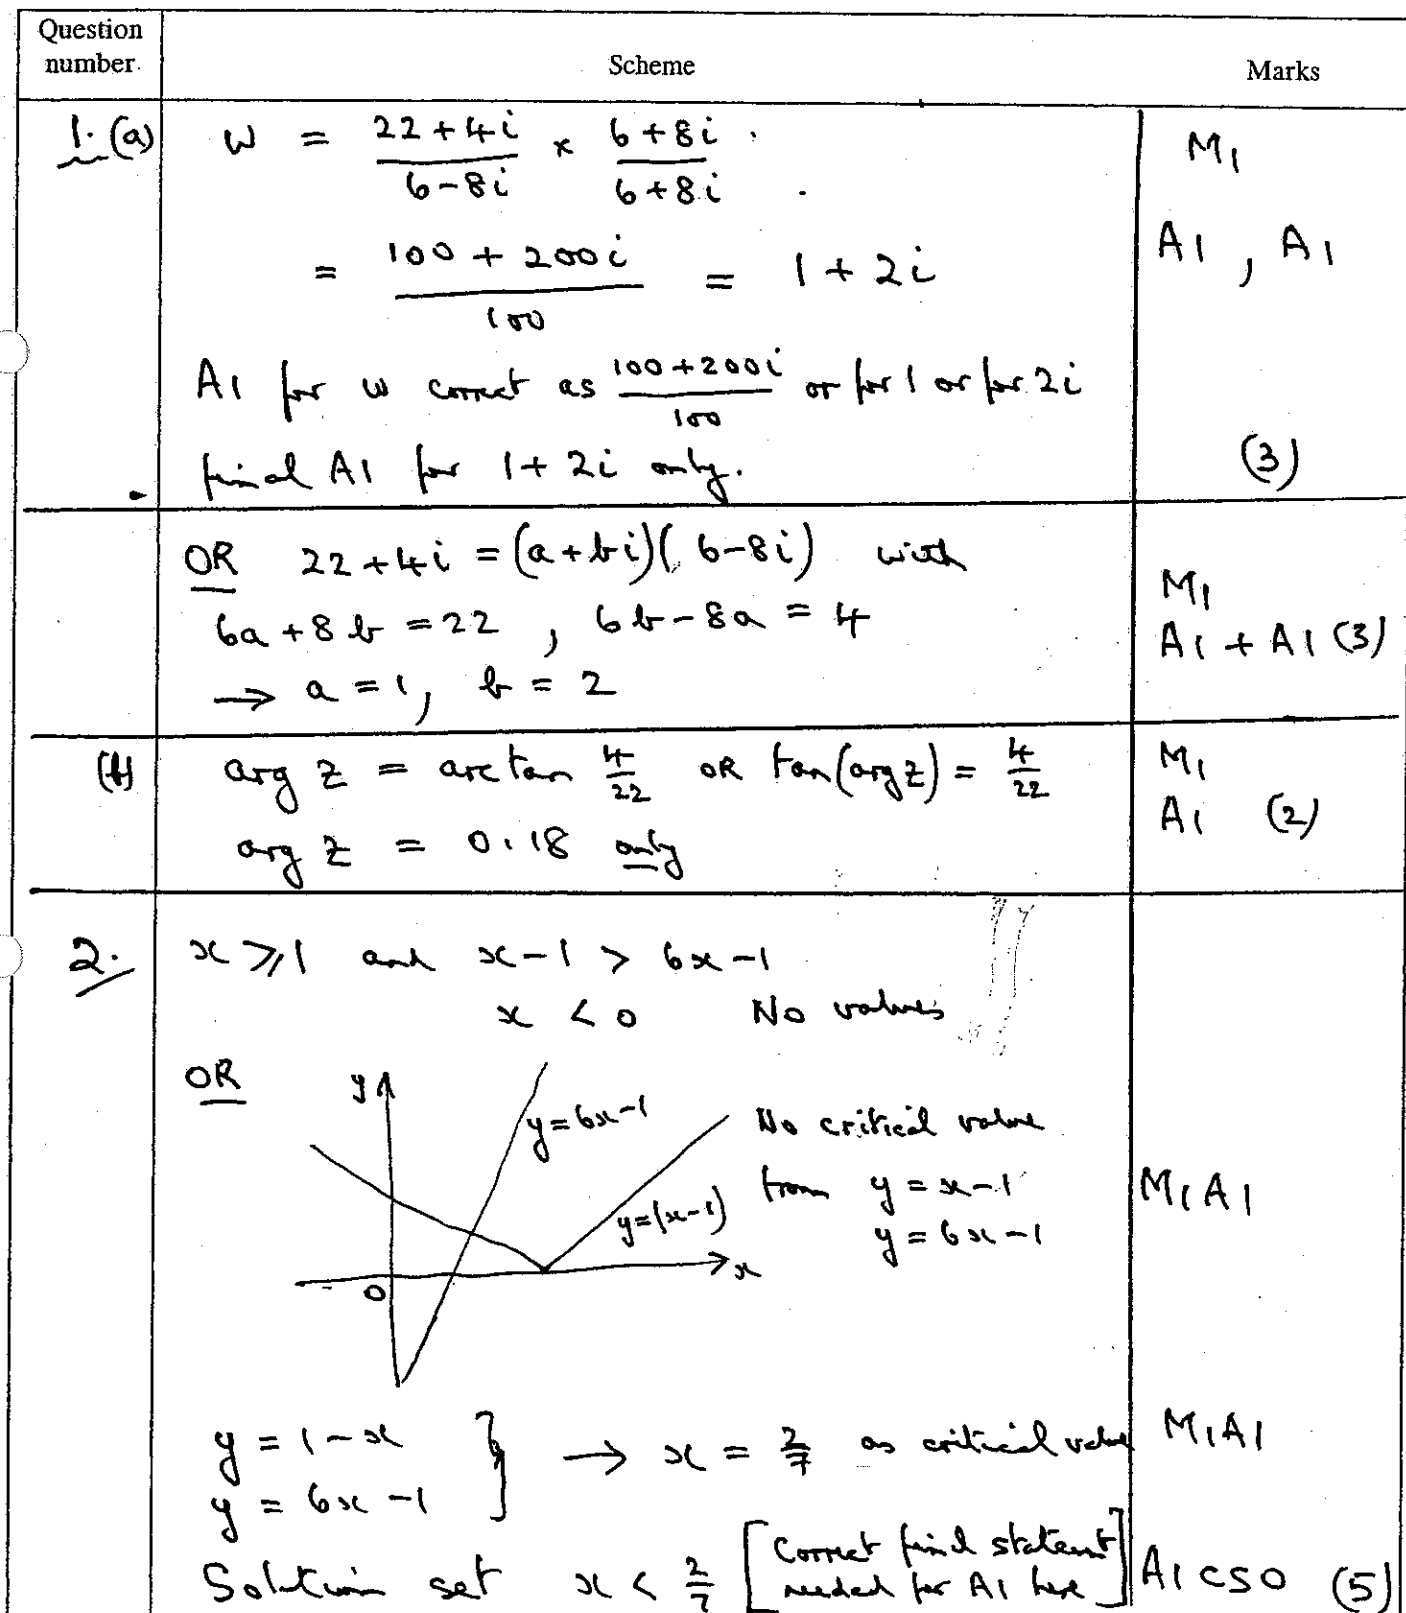 Question number
Scheme
Marks
1. (a) w = (22+4i)/(6-8i) × (6+8i)/(6+8i)
M1
= (100+200i)/100 = 1+2i
A1, A1
A1 for w correct as (100+200i)/100 or for 1 or for 2i
final A1 for 1+2i only.
(3)
OR 22+4i = (a+bi)(6-8i) with
M1
6a+8b=22, 6b-8a=4
A1 + A1 (3)
→ a=1, b=2
(b) arg z = arctan 4/22 OR tan(arg z) = 4/22
M1
arg z = 0.18 only
A1 (2)
2. x ⩾ 1 and x-1 > 6x-1
x < 0 No values
OR
y
y=6x-1
No critical value
from y = x-1
y = 6x-1
M1A1
y=|x-1|
x
0
y = 1-x
y = 6x-1
} → x = 2/7 as critical value
M1A1
Solution set x < 2/7 [Correct final statement needed for A1 here]
A1 cso (5)